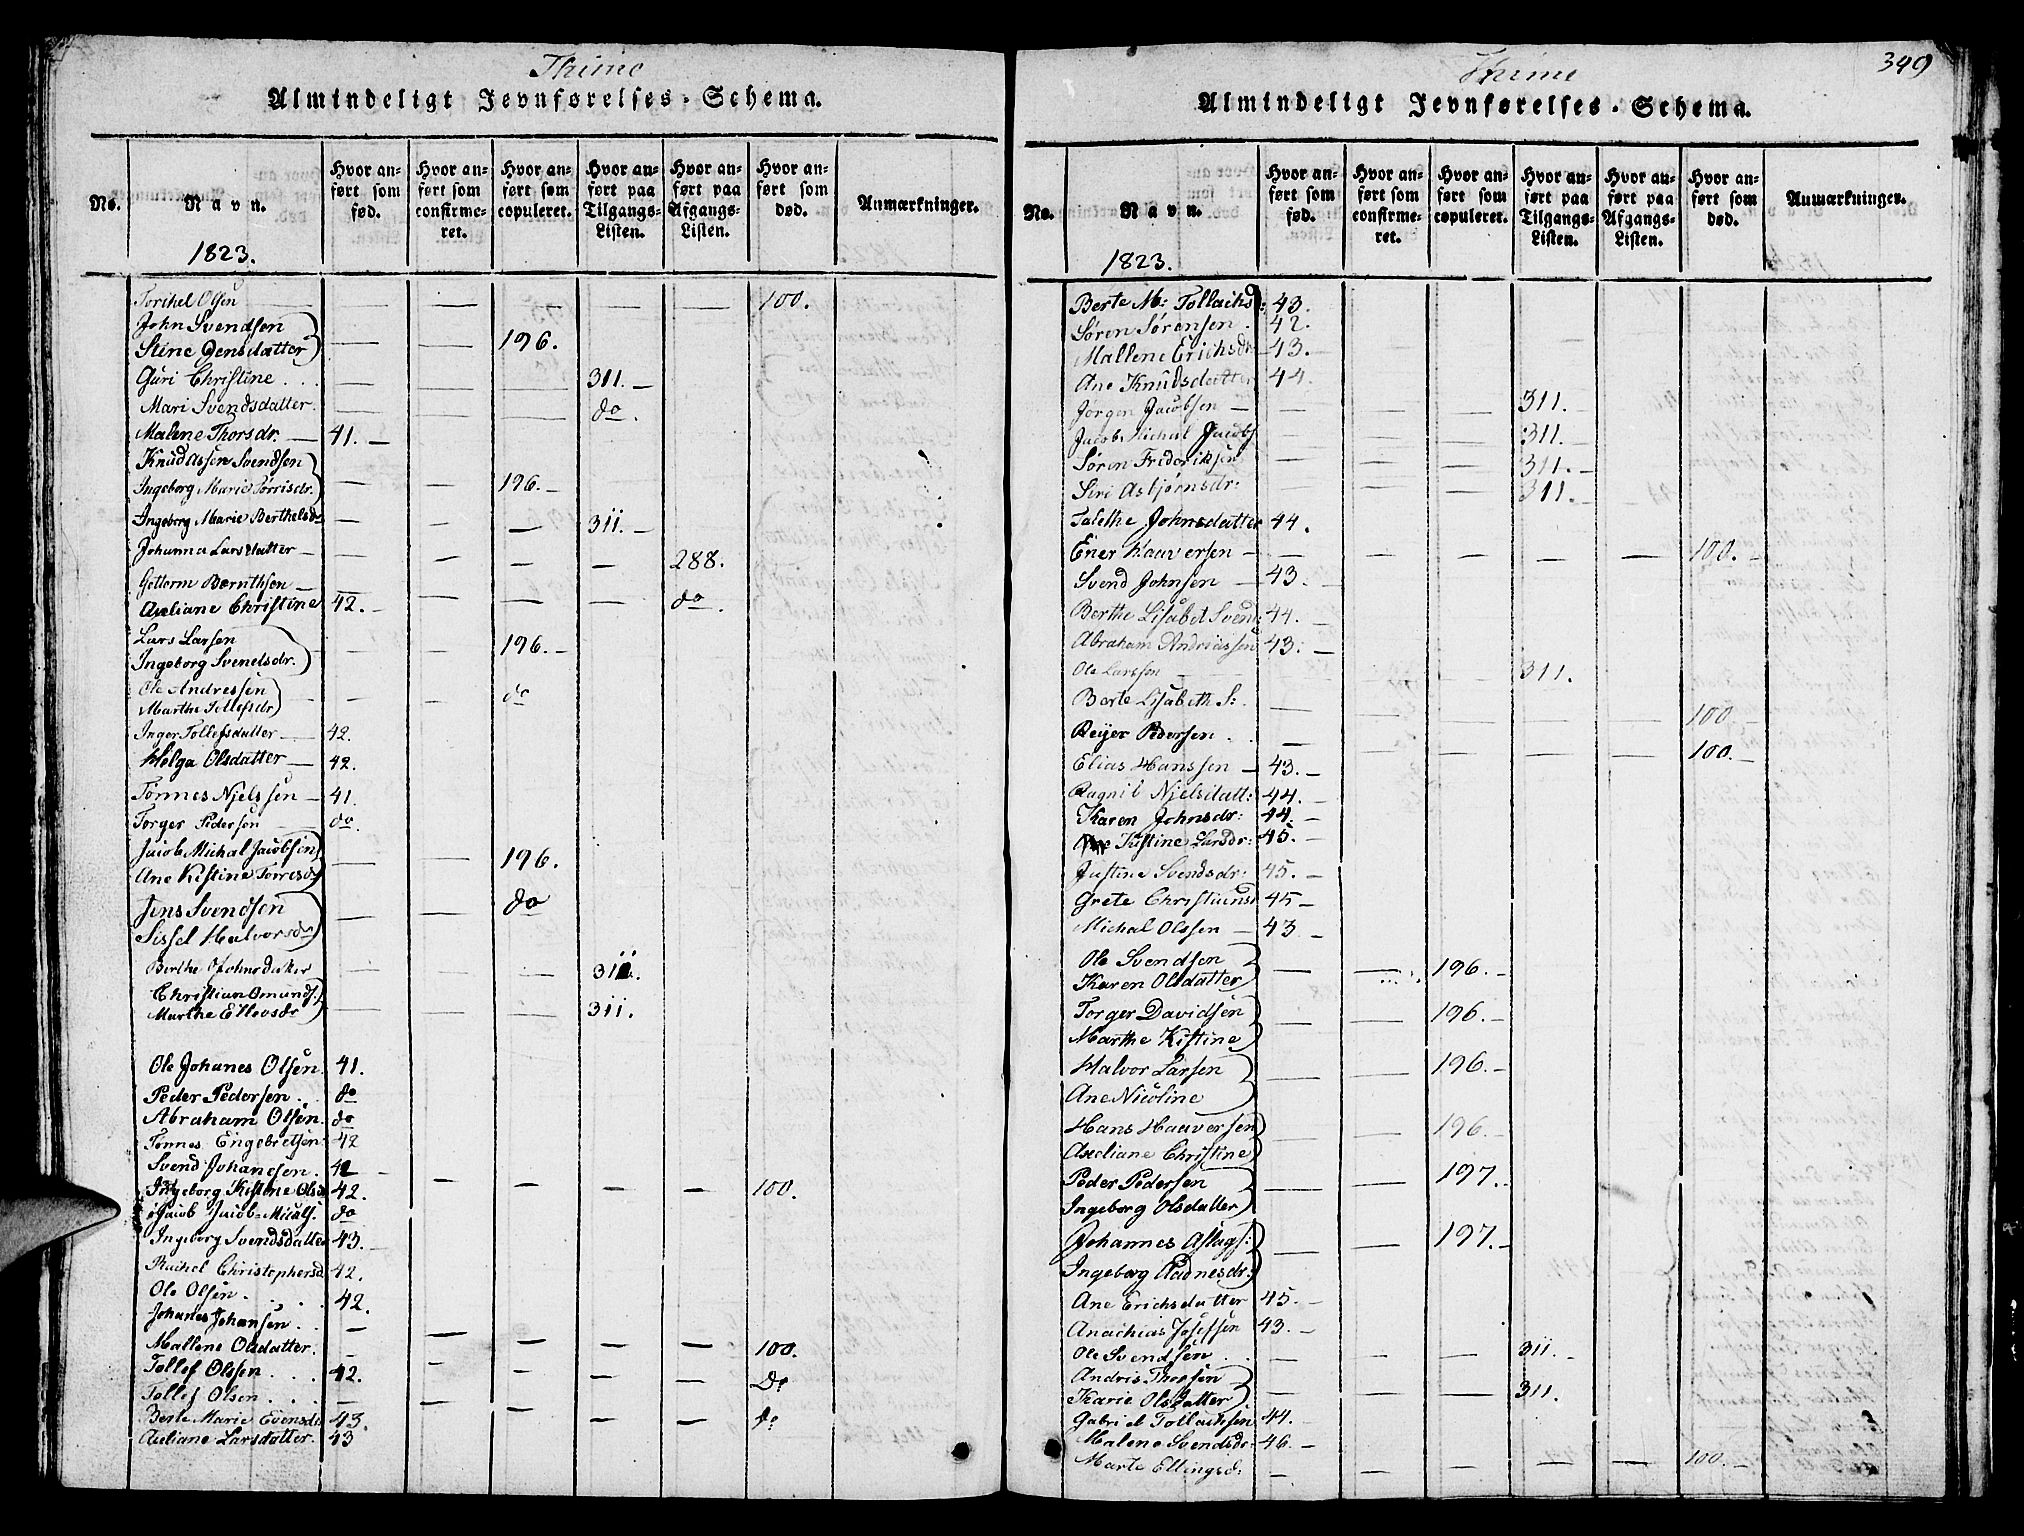 Thime
Almindeligt Jevnførelses-Schema.
No.
Navn.
1823.
Hvor anført som fød.
Hvor anført som confirmeret.
Hvor anført som copuleret.
Hvor anført paa Tilgangs-Listen.
Hvor anført paa Afgangs-Listen.
Hvor anført som død.
Anmærkninger.
Torkel Olsen — — — — — 100.
John Svendsen
Stine Jensdatter — — 196.
Guri Christine . . . — — — 311. —
Mari Svendsdatter. — — — do
Malene Thorsdr. — 41. —
Knud Assen Svendsen
Ingeborg Marie Tørrisdr. — — 196. —
Ingeborg Marie Berthelsdr — — — 311. —
Johanna Larsdatter — — — — — 288.
Gottorm Bernthsen —
Axeliane Christine 42. — — — — do.
Lars Larsen
Ingeborg Svendsdr. — — 196. —
Ole Andressen
Marthe Tollefsdr — — do
Inger Tollefsdatter — 42.
Helga Olsdatter — 42.
Tønnes Njelssen — 41.
Torger Pedersen — do.
Jacob Michal Jacobsen
Ane Kistine Torresdr — — 196.
Jens Svendsen
Sissel Halvorsdr — — do
Berthe Johnsdatter — — 311.
Christian Omunds:
Marthe Ellevsdr — — — 311.
Ole Johanes Olsen. 41.
Peder Pedersen . . do
Abraham Olsen. do
Tønnes Engebretsen 42
Svend Johansen. 42 —
Ingeborg Kistine Olsd 42. — — — — 100.
Jacob Jacob-Micals. do
Ingeborg Svendsdatter 43.
Rachel Christophersd 42.
Ole Olsen. . . . 42.
Johanes Johansen . . —
Mallene Olsdatter. — — — — — 100.
Tollef Olssen . . . 42. — — — — Do
Tollef Olsen . . . — — — — — do
Berte Marie Evensdr 43.
Axeliane Larsdatter. 43
Thime
349
Almindeligt Jevnførelses-Schema.
No.
Navn.
1823.
Hvor anført som fød.
Hvor anført som confirmeret.
Hvor anført som copuleret.
Hvor anført paa Tilgangs-Listen.
Hvor anført paa Afgangs-Listen.
Hvor anført som død.
Anmærkninger.
Berte M: Tollachsd: 43.
Søren Sørensen . 42.
Mallene Erichsdr 43. —
Ane Knudsdatter 44.
Jørgen Jacobsen — — — — 311. —
Jacob Michal Jacobs — — — 311. —
Søren Frideriksen — — — 311. —
Siri Asbjørnsdr: — — — 311. —
Talethe Johnsdatter 44.
Ener Haaversen — — — — — — 100. —
Svend Johnsen — 43. —
Berthe Lisabet Svend: 44. —
Abraham Andreassen 43: —
Ole Larssen — 311.
Berte Lisabeth S: — — — — — 100 —
Reijer Pedersen . . — — — — — 100. —
Elias Hanssen — 43. —
Ragnil Njelsdatt: 44. —
Karen Johnsdr: 44. —
Ane Kistine Larsdr: 45. —
Justine Svendsdr: 45. —
Grete Christiansd 45 —
Michal Olssen — 43 —
Ole Svendsen
Karen Olsdatter — — 196. —
Torger Davidsen
Marthe Kistine — — 196. —
Halvor Larsen
Ane Nicoline — — 196. —
Hans Haaversen
Axeliane Christine — — 196. —
Peder Pedersen
Ingeborg Olsdatter — — 197. —
Johannes Aslags:
Ingeborg Aadnesdr: — — 197. —
Ane Erichsdatter 45. —
Anachias Josefsen 43. —
Ole Svendsen . . — — — 311. —
Andris Thorsen
Karie Olsdatter — — — 311. —
Gabriel Tollachsen 44. —
Malene Svendsdr: 46. —
Marte Ellingsd: — — — — — 100. —